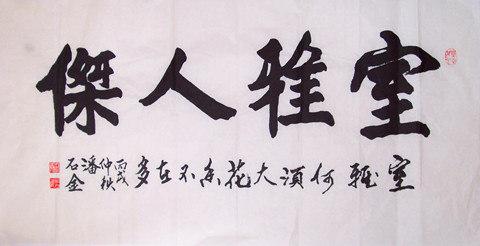 室雅人傑
室雅何須大花香不在多
丙戌
仲秋
潘
石金